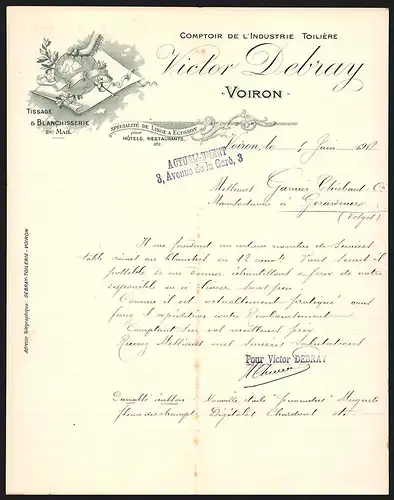 COMPTOIR DE L'INDUSTRIE TOILIÈRE
Victor Debray
VOIRON
TISSAGE
& BLANCHISSERIE
DU MAIL
SPÉCIALITÉ DE LINGE A ECUSSON
pour
HÔTELS, RESTAURANTS,
etc.
Voiron, le 5 Juin 1918
ACTUELLEMENT
3, Avenue de la Gare, 3
Messieurs Garnier Thiebaut & Cie
Manufacture à Gerardmer
(Vosges)
Il me faudrait un certain nombre de services
table cirant au blanchet en 12 couverts. Vous serait il
possible de me donner échantillons & prix de votre
disponible ou à livrer sans peu.
Comme il est actuellement pratiqué vous
l'expédition contre Remboursement
Comptant sur vos meilleurs prix
Recevez Messieurs nos sincères salutations
Pour Victor DEBRAY
Damassés
fleurs des champs. Chardons etc.
Adresse Télégraphique: DEBRAY-TOILERIE-VOIRON